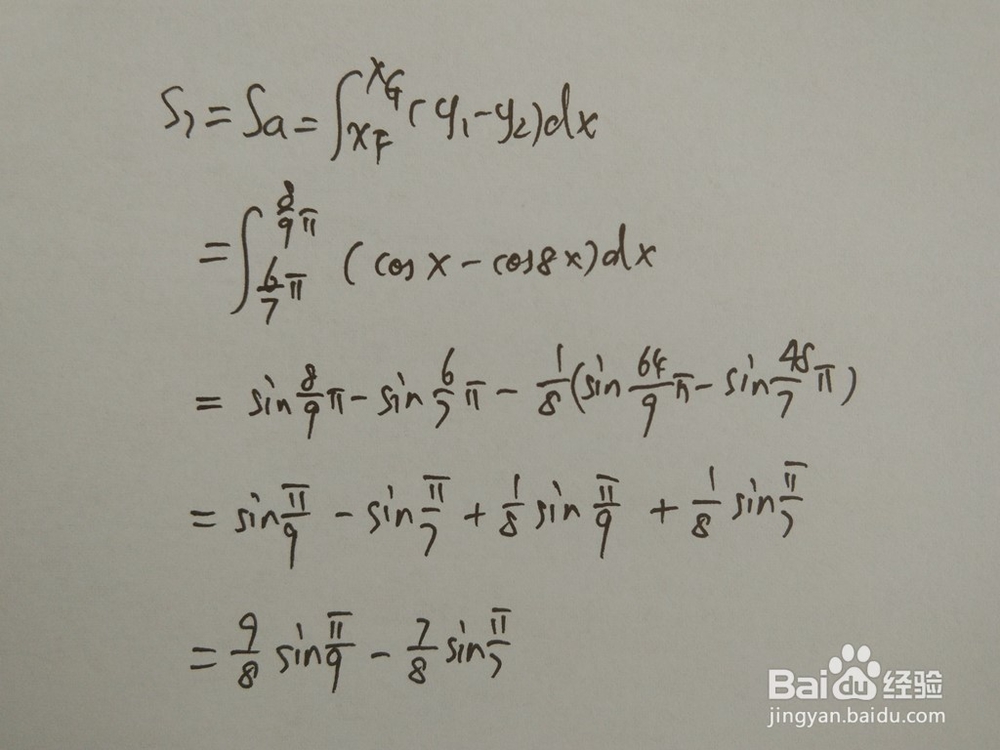 S₇ = Sa = ∫_{x_F}^{x_G} (y₁ - y₂)dx
= ∫_{6/7 π}^{8/9 π} (cos x - cos 8x)dx
= sin 8/9 π - sin 6/7 π - 1/8 (sin 64/9 π - sin 48/7 π)
= sin π/9 - sin π/7 + 1/8 sin π/9 + 1/8 sin π/7
= 9/8 sin π/9 - 7/8 sin π/7
Baidu 经验
jingyan.baidu.com